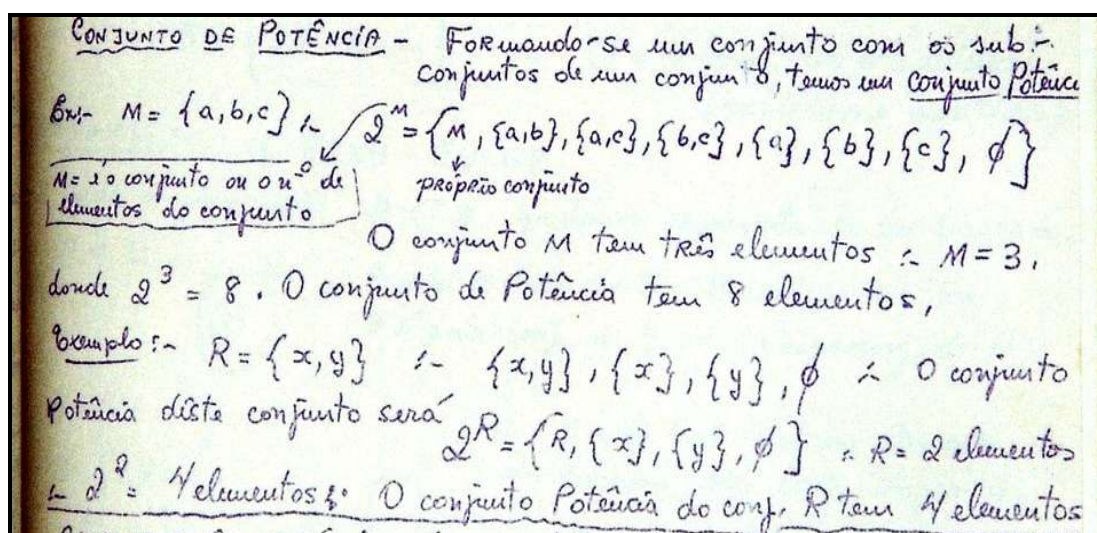 CONJUNTO DE POTÊNCIA - Formando-se um conjunto com os sub-
conjuntos de um conjunto, temos um conjunto Potênc
Ex:- M = {a,b,c} ∴ 2^M = {M, {a,b}, {a,c}, {b,c}, {a}, {b}, {c}, ϕ}
M = é o conjunto ou o nº de
elementos do conjunto
próprio conjunto
O conjunto M tem três elementos ∴ M = 3.
donde 2^3 = 8. O conjunto de Potência tem 8 elementos,
Exemplo:- R = {x,y} ∴ {x,y}, {x}, {y}, ϕ ∴ O conjunto
Potência dêste conjunto será
2^R = {R, {x}, {y}, ϕ} ∴ R = 2 elementos
∴ 2^2 = 4 elementos ∴ O conjunto Potência do conj. R tem 4 elementos